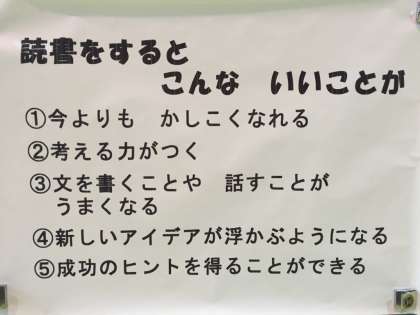 読書をすると
こんな いいことが
①今よりも かしこくなれる
②考える力がつく
③文を書くことや 話すことが
うまくなる
④新しいアイデアが浮かぶようになる
⑤成功のヒントを得ることができる